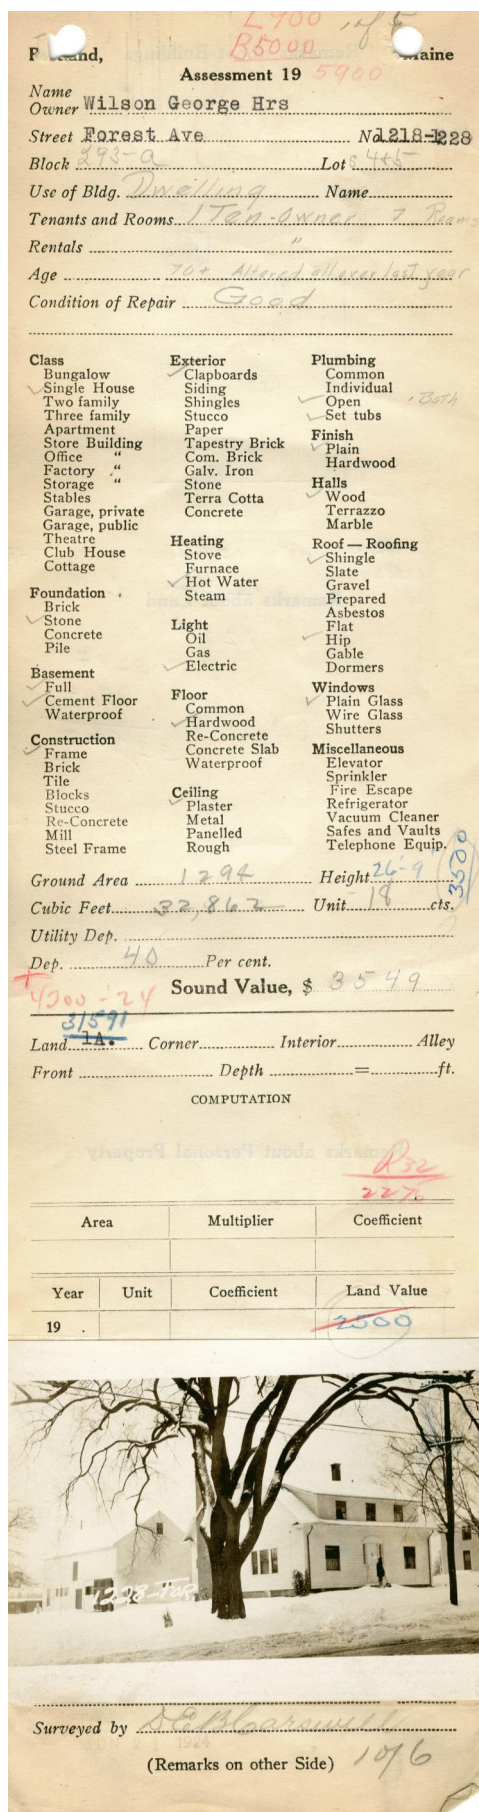 L900 1 of 5
Portland, B5000 Maine
Assessment 19 5900
Name
Owner Wilson George Hrs
Street Forest Ave No. 1218-1228
Block 293-A Lots 4+5
Use of Bldg. Dwelling Name
Tenants and Rooms 1 Ten-Owner 7 Rooms
Rentals "
Age 70+ Altered all over last year
Condition of Repair Good
Class
Bungalow
Single House
Two family
Three family
Apartment
Store Building
Office "
Factory "
Storage "
Stables
Garage, private
Garage, public
Theatre
Club House
Cottage
Foundation
Brick
Stone
Concrete
Pile
Basement
Full
Cement Floor
Waterproof
Construction
Frame
Brick
Tile
Blocks
Stucco
Re-Concrete
Mill
Steel Frame
Exterior
Clapboards
Siding
Shingles
Stucco
Paper
Tapestry Brick
Com. Brick
Galv. Iron
Stone
Terra Cotta
Concrete
Heating
Stove
Furnace
Hot Water
Steam
Light
Oil
Gas
Electric
Floor
Common
Hardwood
Re-Concrete
Concrete Slab
Waterproof
Ceiling
Plaster
Metal
Panelled
Rough
Plumbing
Common
Individual
Open 1 Bath
Set tubs
Finish
Plain
Hardwood
Halls
Wood
Terrazzo
Marble
Roof — Roofing
Shingle
Slate
Gravel
Prepared
Asbestos
Flat
Hip
Gable
Dormers
Windows
Plain Glass
Wire Glass
Shutters
Miscellaneous
Elevator
Sprinkler
Fire Escape
Refrigerator
Vacuum Cleaner
Safes and Vaults
Telephone Equip.
3500
Ground Area 1294 Height 26'-9"
Cubic Feet 32,862 Unit 18 cts.
Utility Dep.
Dep. 40 Per cent.
+
4200-'24 Sound Value, $ 3549
31591
Land 1A. Corner Interior Alley
Front Depth = ft.
COMPUTATION
R32
2276
Area Multiplier Coefficient
Year Unit Coefficient Land Value
19 . 2500
1228-FOR
Surveyed by D E B Carswell
1924
(Remarks on other Side) 10/6